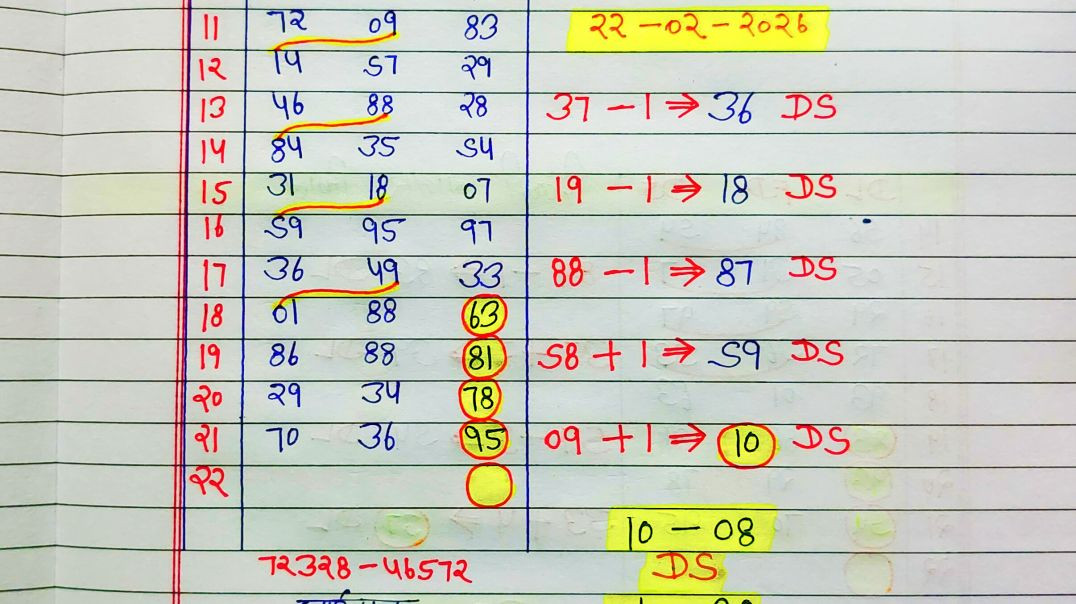 11 72 09 83 22-02-2026
12 14 57 29
13 46 88 28 37-1⇒36 DS
14 84 35 54
15 31 18 07 19-1⇒18 DS
16 59 95 97
17 36 49 33 88-1⇒87 DS
18 01 88 63
19 86 88 81 58+1⇒59 DS
20 29 34 78
21 70 36 95 09+1⇒10 DS
22
10-08
72328-46572 DS